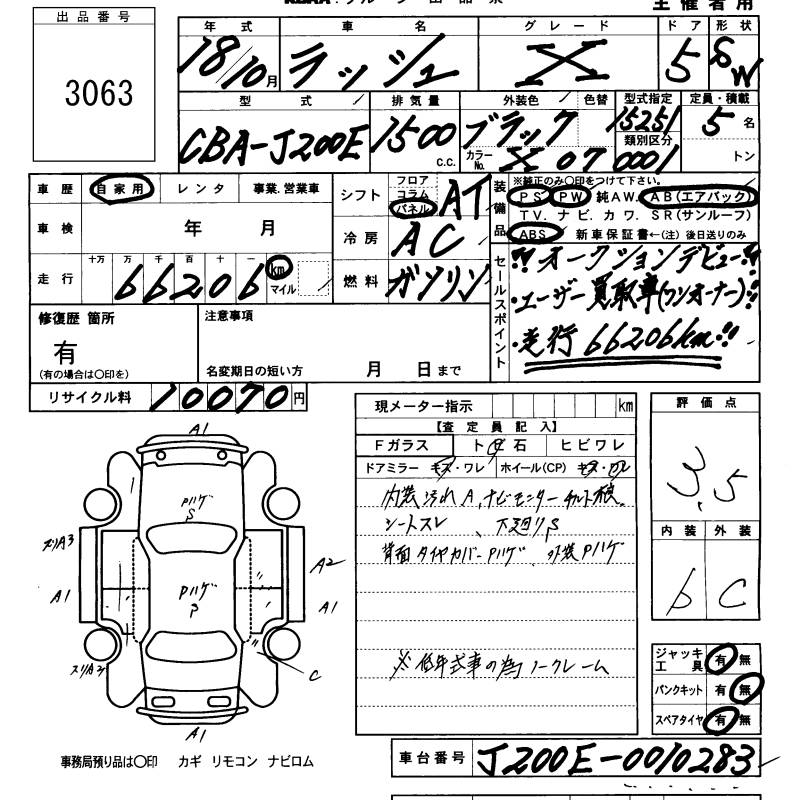 主催者用
出品番号
3063
年式 車名 グレード ドア 形状
18/10月 ラッシュ X 5 SW
型式 排気量 外装色 色替 型式指定 定員・積載
CBA-J200E 1500 c.c. ブラック 15251 5名
カラーNo. X07 類別区分 0001 トン
車歴 自家用 レンタ 事業.営業車
車検 年 月
走行 十万 万 千 百 十 一 km マイル
66206
シフト フロア コラム パネル AT
冷房 AC
燃料 ガソリン
装備品 ※純正のみ〇印をつけて下さい。
PS PW 純AW. AB(エアバック)
TV. ナビ. カワ. SR(サンルーフ)
ABS 新車保証書←(注)後日送りのみ
セールスポイント
!!オークションデビュー!!
・ユーザー買取車(ワンオーナー)!!
・走行 66206km!!
修復歴 箇所
有
(有の場合は〇印を)
注意事項
名変期日の短い方 月 日まで
リサイクル料 10070円
現メーター指示 km
【査定員記入】
Fガラス ト 石 ヒビワレ
ドアミラー キズ・ワレ ホイール(CP) キズ・ワレ
内装汚れA、ナビモニター
シートスレ、下廻りS
背面タイヤカバーPハゲ 外装Pハゲ
※低年式車の為ノークレーム
評価点
3.5
内装 外装
b C
ジャッキ工具 有 無
パンクキット 有 無
スペアタイヤ 有 無
A1
Pハゲ
S
Pハゲ
A2
A1
A1
C
A1
事務局預り品は〇印 カギ リモコン ナビロム
車台番号 J200E-0010283